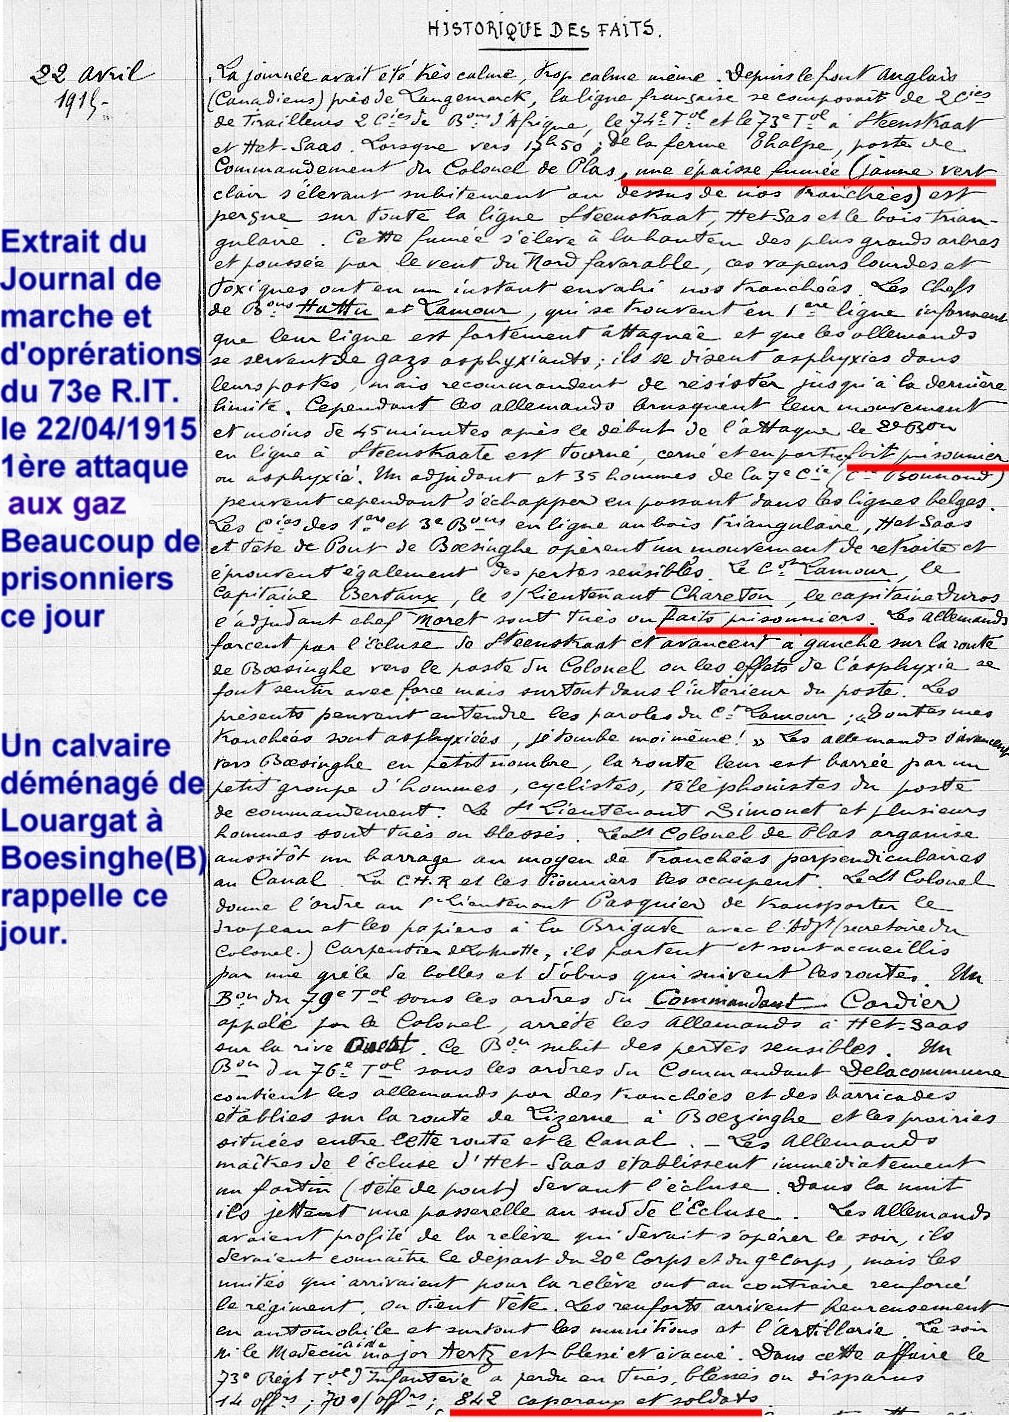 HISTORIQUE DES FAITS.
22 avril
1915-
La journée avait été très calme, trop calme même. Depuis le front Anglais
(Canadiens) près de Langemarck, la ligne française se composait de 2 Cies
de Tirailleurs 2 Cies de Bons d'Afrique, le 74e Tol et le 73e Tol à Steenstraat
et Het-Saas. Lorsque vers 17h50, de la ferme, poste de
Commandement du Colonel de Plas, une épaisse fumée (jaune vert
clair s'élevant subitement au dessus de nos tranchées) est
perçue sur toute la ligne Steenstraat, Het Sas et le bois trian-
gulaire. Cette fumée s'élève à la hauteur des plus grands arbres
et poussée par le vent du Nord favorable, ces vapeurs lourdes et
toxiques ont en un instant envahi nos tranchées. Les Chefs
de Bons et Lamour, qui se trouvent en 1ère ligne informent
que leur ligne est fortement attaquée et que les allemands
se servent de gazs asphyxiants; ils se disent asphyxiés dans
leurs postes, mais recommandent de résister jusqu'à la dernière
limite. Cependant les allemands brusquent leur mouvement
et moins de 45 minutes après le début de l'attaque le 2d Bon
en ligne à Steenstraate est tourné, cerné et en partie fait prisonnier
ou asphyxié. Un adjudant et 35 hommes de la 7e Cie (Cie Bonnond)
peuvent cependant s'échapper en passant dans les lignes belges.
Les Cies des 1er et 3e Bons en ligne au bois triangulaire, Het Saas
et Tête de Pont de Boesinghe opèrent un mouvement de retraite et
éprouvent également des pertes sensibles. Le Ct Lamour, le
Capitaine Bertaux, le s/Lieutenant Chareton, le capitaine Duros
l'adjudant chef Moret sont tués ou faits prisonniers. Les allemands
forcent par l'écluse de Steenstraat et avancent à gauche sur la route
de Boesinghe vers le poste du Colonel où les effets de l'asphyxie se
font sentir avec force mais surtout dans l'intérieur du poste. Les
présents peuvent entendre les paroles du Ct Lamour; « Toutes mes
tranchées sont asphyxiées, je tombe moi même! » Les allemands s'avancent
vers Boesinghe en petit nombre, la route leur est barrée par un
petit groupe d'hommes, cyclistes, téléphonistes du poste
de commandement. Le st Lieutenant Simonet et plusieurs
hommes sont tués ou blessés. Le Lt Colonel de Plas organise
aussitôt un barrage au moyen de tranchées perpendiculaires
au Canal. La C.H.R et les Pionniers les occupent. Le Lt Colonel
donne l'ordre au Lieutenant Pasquier de transporter le
drapeau et les papiers à la Brigade avec l'Adjt (secrétaire du
Colonel.) Carpentier de Lamotte, ils partent et sont accueillis
par une grêle de balles et d'obus qui suivent les routes. Un
Bon du 79e Tol sous les ordres du Commandant Cordier
appelé par le Colonel, arrête les Allemands à Het-Saas
sur la rive Ouest. Ce Bon subit des pertes sensibles. Un
Bon du 76e Tol sous les ordres du Commandant Delacommune
contient les allemands par des tranchées et des barricades
établies sur la route de Lizerne à Boezinghe et les prairies
situées entre cette route et le Canal. - Les Allemands
maîtres de l'écluse d'Het-Saas établissent immédiatement
un fortin (tête de pont) devant l'écluse. Dans la nuit
ils jettent une passerelle au sud de l'Ecluse. Les Allemands
avaient profité de la relève qui devait s'opérer le soir, ils
devaient connaître le départ du 20e Corps et du 9e Corps, mais les
unités qui arrivaient pour la relève ont au contraire renforcé
le régiment. On tient tête. Les renforts arrivent heureusement
en automobile et surtout les munitions et l'artillerie. Le soir
Mr le Médecin aide major Hertz est blessé et évacué. Dans cette affaire le
73e Regt Tol d'Infanterie a perdu en tués, blessés ou disparus
14 offrs; 70 s/offrs; 842 caporaux et soldats.
Extrait du
Journal de
marche et
d'oprérations
du 73e R.IT.
le 22/04/1915
1ère attaque
aux gaz
Beaucoup de
prisonniers
ce jour
Un calvaire
déménagé de
Louargat à
Boesinghe(B)
rappelle ce
jour.